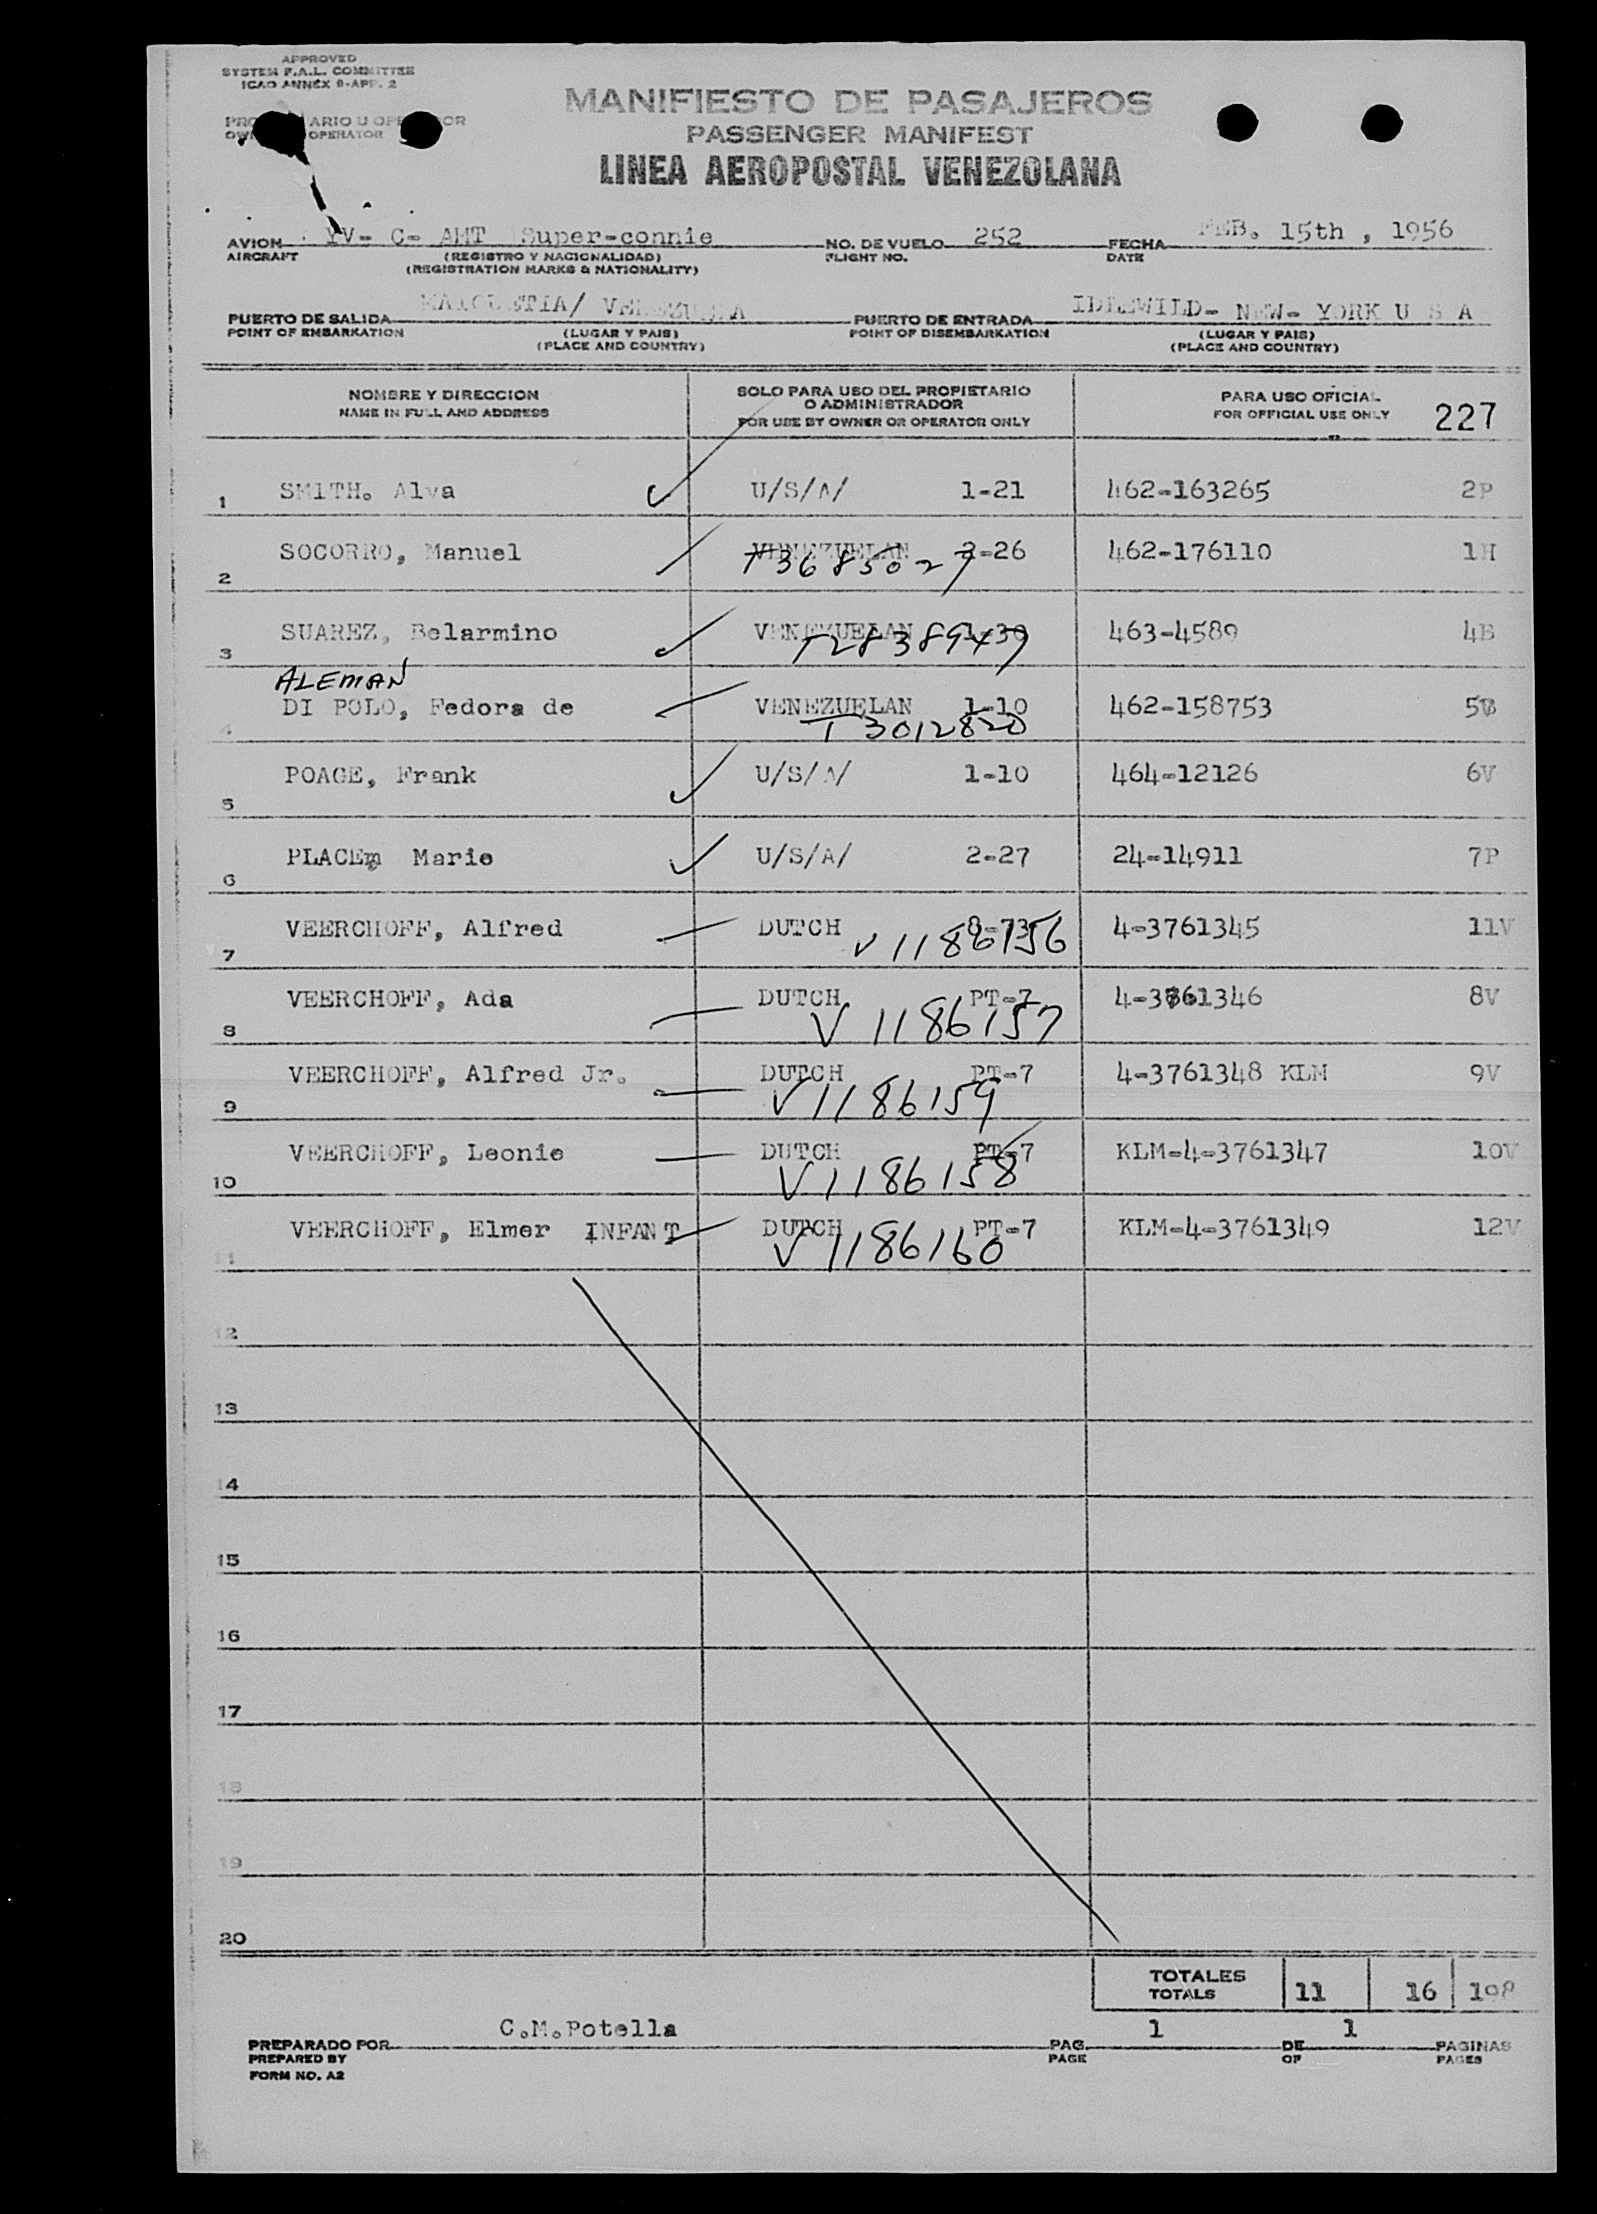 APPROVED
SYSTEM F.A.L. COMMITTEE
ICAO ANNEX 9-APP. 2
OPERATOR
MANIFIESTO DE PASAJEROS
PASSENGER MANIFEST
LINEA AEROPOSTAL VENEZOLANA
AVION YV- C- AMT Super-connie NO. DE VUELO 252 FECHA FEB. 15th , 1956
AIRCRAFT (REGISTRO Y NACIONALIDAD) FLIGHT NO. DATE
(REGISTRATION MARKS & NATIONALITY)
PUERTO DE SALIDA MAIQUETIA/ VENEZUELA PUERTO DE ENTRADA IDLEWILD- NEW- YORK U S A
POINT OF EMBARKATION (LUGAR Y PAIS) POINT OF DISEMBARKATION (LUGAR Y PAIS)
(PLACE AND COUNTRY) (PLACE AND COUNTRY)
NOMBRE Y DIRECCION SOLO PARA USO DEL PROPIETARIO PARA USO OFICIAL
NAME IN FULL AND ADDRESS O ADMINISTRADOR FOR OFFICIAL USE ONLY 227
FOR USE BY OWNER OR OPERATOR ONLY
1 SMITH. Alva U/S/A/ 1-21 462-163265 2P
2 SOCORRO, Manuel VENEZUELAN 2-26 462-176110 1H
T3685027
3 SUAREZ, Belarmino VENEZUELAN 1-30 463-4589 4B
T2838947
ALEMAN
4 DI POLO, Fedora de VENEZUELAN 1-10 462-158753 5B
T3012820
5 POAGE, Frank U/S/A/ 1-10 464-12126 6V
6 PLACE, Marie U/S/A/ 2-27 24-14911 7P
7 VEERCHOFF, Alfred DUTCH 8-73 4-3761345 11V
V1186156
8 VEERCHOFF, Ada DUTCH PT-7 4-3761346 8V
V1186157
9 VEERCHOFF, Alfred Jr. DUTCH PT-7 4-3761348 KLM 9V
V1186159
10 VEERCHOFF, Leonie DUTCH PT-7 KLM-4-3761347 10V
V1186158
11 VEERCHOFF, Elmer INFANT DUTCH PT-7 KLM-4-3761349 12V
V1186160
12
13
14
15
16
17
18
19
20
TOTALES 11 16 108
TOTALS
PREPARADO POR C.M.Potella PAG. 1 DE 1 PAGINAS
PREPARED BY PAGE OF PAGES
FORM NO. A2